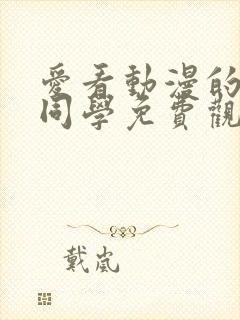 愛看動漫的
同學免費觀
戴嵐